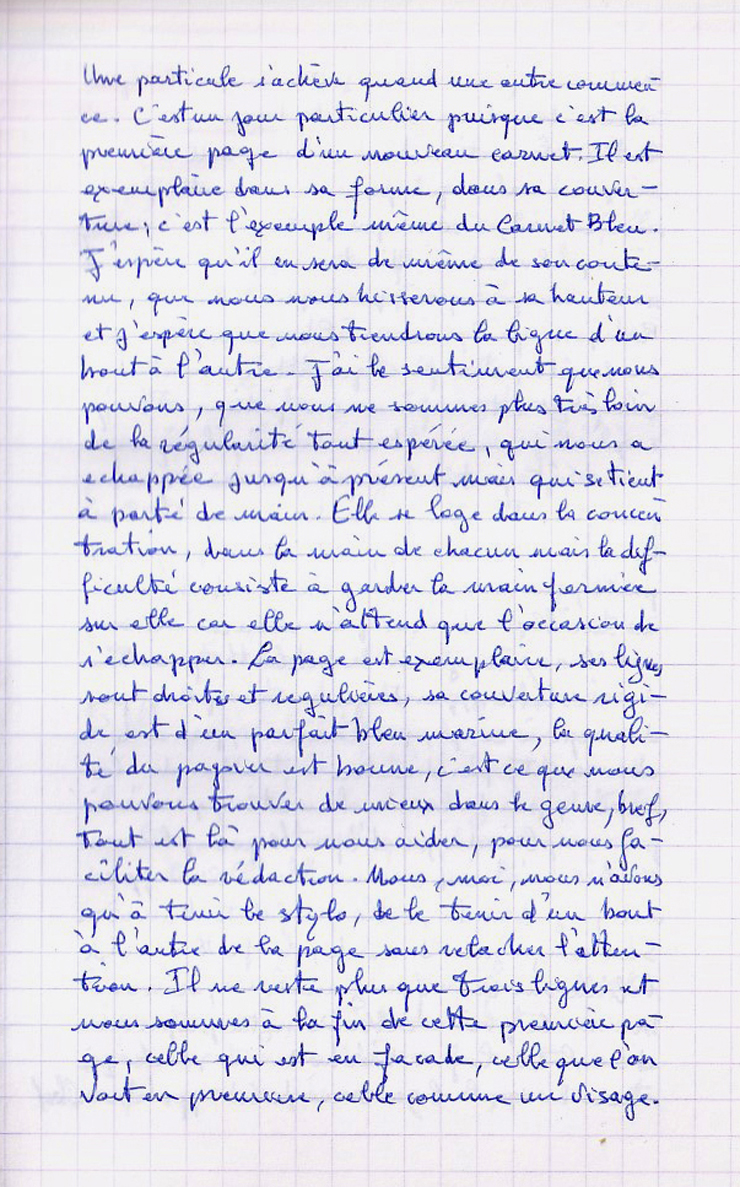 Une particule s'achève quand une autre commen
ce. C'est un jour particulier puisque c'est la
première page d'un nouveau carnet. Il est
exemplaire dans sa forme, dans sa couver-
ture; c'est l'exemple même du Carnet Bleu.
J'espère qu'il en sera de même de son conte-
nu, que nous nous hisserons à sa hauteur
et j'espère que nous tiendrons la ligne d'un
bout à l'autre. J'ai le sentiment que nous
pouvons, que nous ne sommes plus très loin
de la régularité tant espérée, qui nous a
echappée jusqu'à présent mais qui se tient
à porté de main. Elle se loge dans la concen
tration, dans la main de chacun mais la dif-
ficulté consiste à garder la main fermée
sur elle car elle n'attend que l'occasion de
s'échapper. La page est exemplaire, ses lignes
sont droites et regulières, sa couverture rigi-
de est d'un parfait bleu marine, la quali-
té du papier est bonne, c'est ce que nous
pouvons trouver de mieux dans le genre, bref,
tout est là pour nous aider, pour nous fa-
ciliter la rédaction. Nous, moi, nous n'avons
qu'à tenir le stylo, de le tenir d'un bout
à l'autre de la page sans relacher l'atten-
tion. Il ne reste plus que trois lignes et
nous sommes à la fin de cette première pa
ge, celle qui est en facade, celle que l'on
voit en premiere, celle comme un visage.